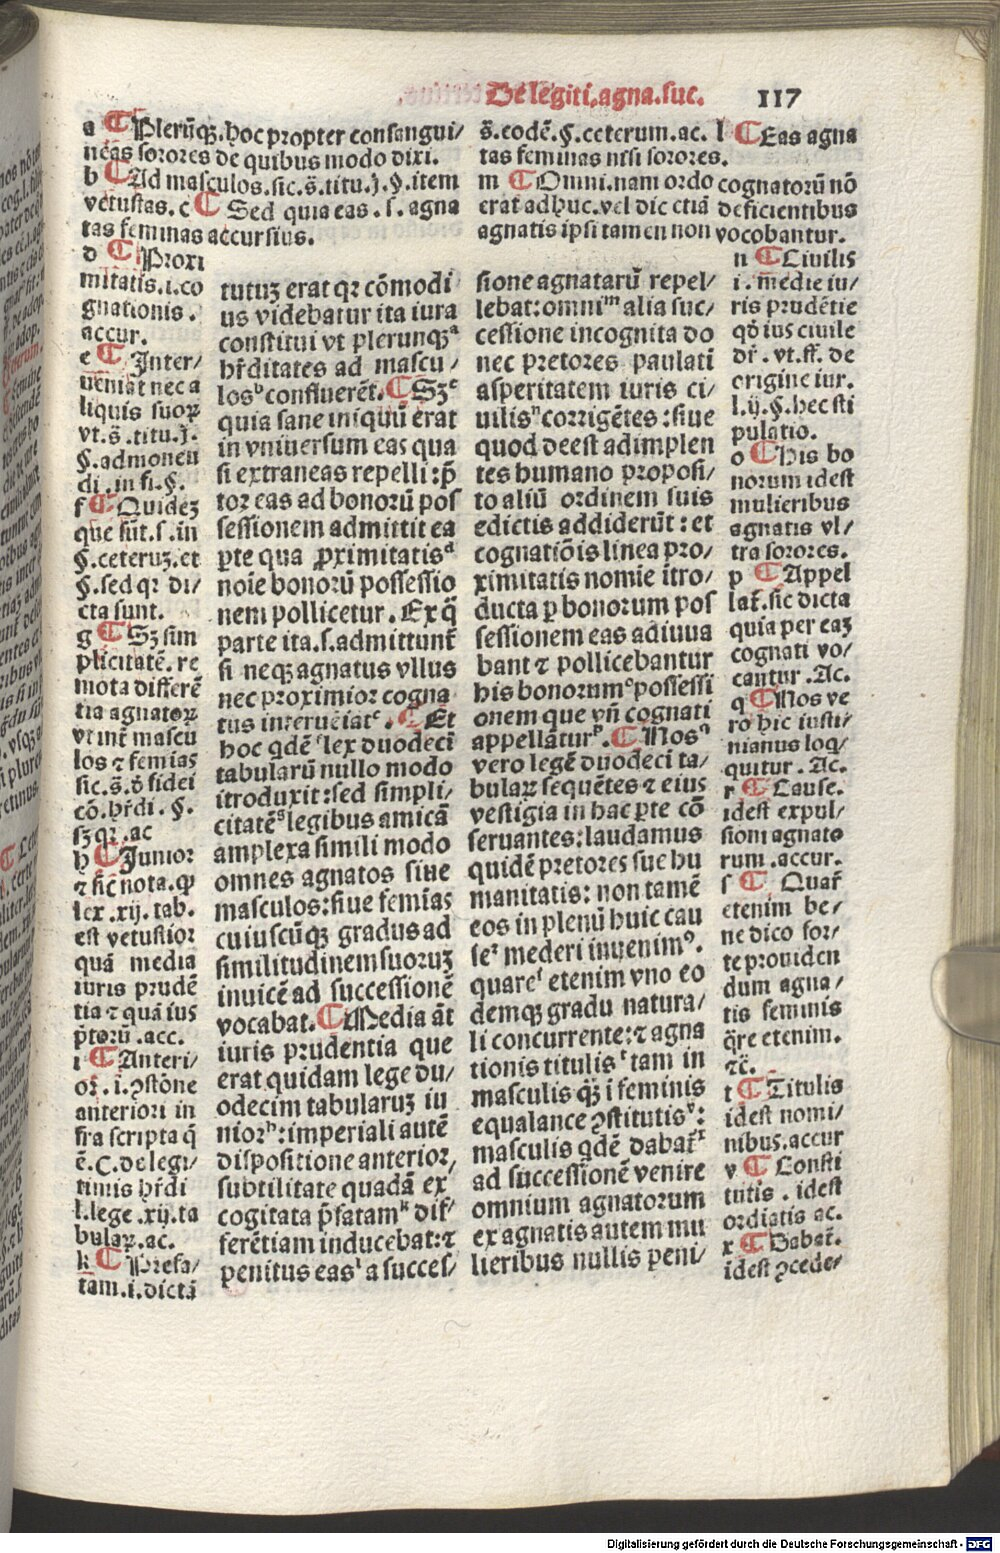 De legiti.agna.suc. 117
a ¶ Plerūqꝫ.hoc propter consangui/
neas sorores de quibus modo dixi.
b ¶ Ad masculos.sic.s̄.titu.j.§.item
vetustas. c ¶ Sed quia eas.s.agna
tas feminas accursius.
d ¶ Proxi
mitatis.i.co
gnationis.
accur.
e ¶ Inter/
ueniat nec a
liquis suoꝝ
vt.s̄.titu.j.
§.admonen
di.in fi.§.
f ¶ Quidez
que sūt.s.in
§.ceteruꝫ.et
§.sed qꝛ di/
cta sunt.
g ¶ Sꝫ sim
plicitatē.re
mota differē
tia agnatoꝝ
vt int̄ mascu
los ⁊ femias
sic.s̄.d̄ fidei
cō.hr̄di.§.
sꝫ qꝛ.ac
h ¶ Junior
⁊ sic̄ nota.ꝙ
lex.xij.tab.
est vetustior
quā media
iuris prudē
tia ⁊ quā ius
p̄torū.acc.
i ¶ Anteri/
oꝛ.i.ꝯstōne
anteriori in
fra scripta q̄
ē.C.de legi/
timis hr̄di
l.lege.xij.ta
bulaꝝ.ac.
k ¶ Prefa/
tam.i.dictā
tutuꝫ erat qꝛ cōmodi
us videbatur ita iura
constitui vt plerunqꝫᵃ
hr̄ditates ad mascu/
losᵇ confluerēt. ¶ Sꝫᶜ
quia sane iniquū erat
in vniuersum eas qua
si extraneas repelli: p̄
tor eas ad bonorū pos
sessionem admittit ea
ꝑte qua ꝓximitatisᵈ
noīe bonorū possessio
nem pollicetur. Ex q̄
parte ita.s.admittunt̄
si neqꝫ agnatus vllus
nec proximior cogna
tus interueiatᵉ. ¶ Et
hoc qdē ᶠlex duodeci
tabularū nullo modo
itroduxit: sed simpli/
citatēᵍ legibus amicā
amplexa simili modo
omnes agnatos siue
masculos: siue femias
cuiuscūqꝫ gradus ad
similitudinem suoruꝫ
inuicē ad successionē
vocabat. ¶ Media āt
iuris prudentia que
erat quidam lege du/
odecim tabularuꝫ iu
niorʰ: imperiali autē
dispositione anteriorⁱ
subtilitate quadā ex
cogitata p̄fatamᵏ dif/
ferētiam inducebat: ⁊
penitus easˡ a succes/
s̄.eodē.§.ceterum.ac. l ¶ Eas agna
tas feminas nisi sorores.
m ¶ Omni.nam ordo cognatorū nō
erat adhuc.vel dic etiā deficientibus
agnatis ipsi tamen non vocobantur.
sione agnatarū repel/
lebat: omniᵐ alia suc/
cessione incognita do
nec pretores paulati
asperitatem iuris ci/
uilisⁿ corrigētes: siue
quod deest adimplen
tes humano proposi/
to aliū ordinem suis
edictis addiderūt: et
cognatiōis linea pro/
ximitatis nomie itro/
ducta ꝑ bonorum pos
sessionem eas adiuua
bant ⁊ pollicebantur
his bonorumᵒ possessi
onem que vn̄ cognati
appellāturᵖ. ¶ Nosq
vero legē duodeci ta/
bulaꝝ sequētes ⁊ eius
vestigia in hac ꝑte cō
seruantes: laudamus
quidē pretores sue hu
manitatis: non tamē
eos in plenū huic cau
seʳ mederi inuenimꝰ.
quareˢ etenim vno eo
demqꝫ gradu natura/
li concurrente: ⁊ agna
tionis titulisᵗ tam in
masculis qꝫ̄ i feminis
equalance ꝯstitutisᵛ:
masculis qdē dabat̄ˣ
ad successionē venire
omnium agnatorum
ex agnatis autem mu
lieribus nullis peni/
n ¶ Ciuilis
i.medie iu/
ris prudētie
qd̄ ius ciuile
dr̄.vt.ff.de
origine iur.
l.ij.§.hec sti
pulatio.
o ¶ His bo
norum idest
mulieribus
agnatis vl/
tra sorores.
p ¶ Appel
lat̄.sic dicta
quia per eaꝫ
cognati vo/
cantur.Ac.
q ¶ Nos ve
ro hic iusti/
nianus loq/
quitur.Ac.
r ¶ Cause.
idest expul/
sioni agnato
rum.accur.
s ¶ Quar̄
etenim be/
ne dico for/
te prouiden
dum agna/
tis feminis
q̄re etenim.
⁊c̄.
t ¶ Titulis
idest nomi/
nibus.accur
v ¶ Consti
tutis.idest
ordiatis ac.
x ¶ Dabat̄.
idest ꝯcede/
Digitalisierung gefördert durch die Deutsche Forschungsgemeinschaft - DFG